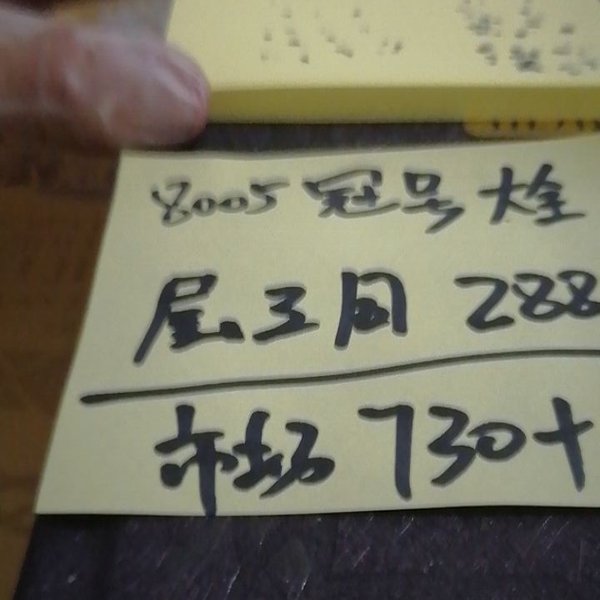 8005冠号大全
尾三同 288
市场 730+